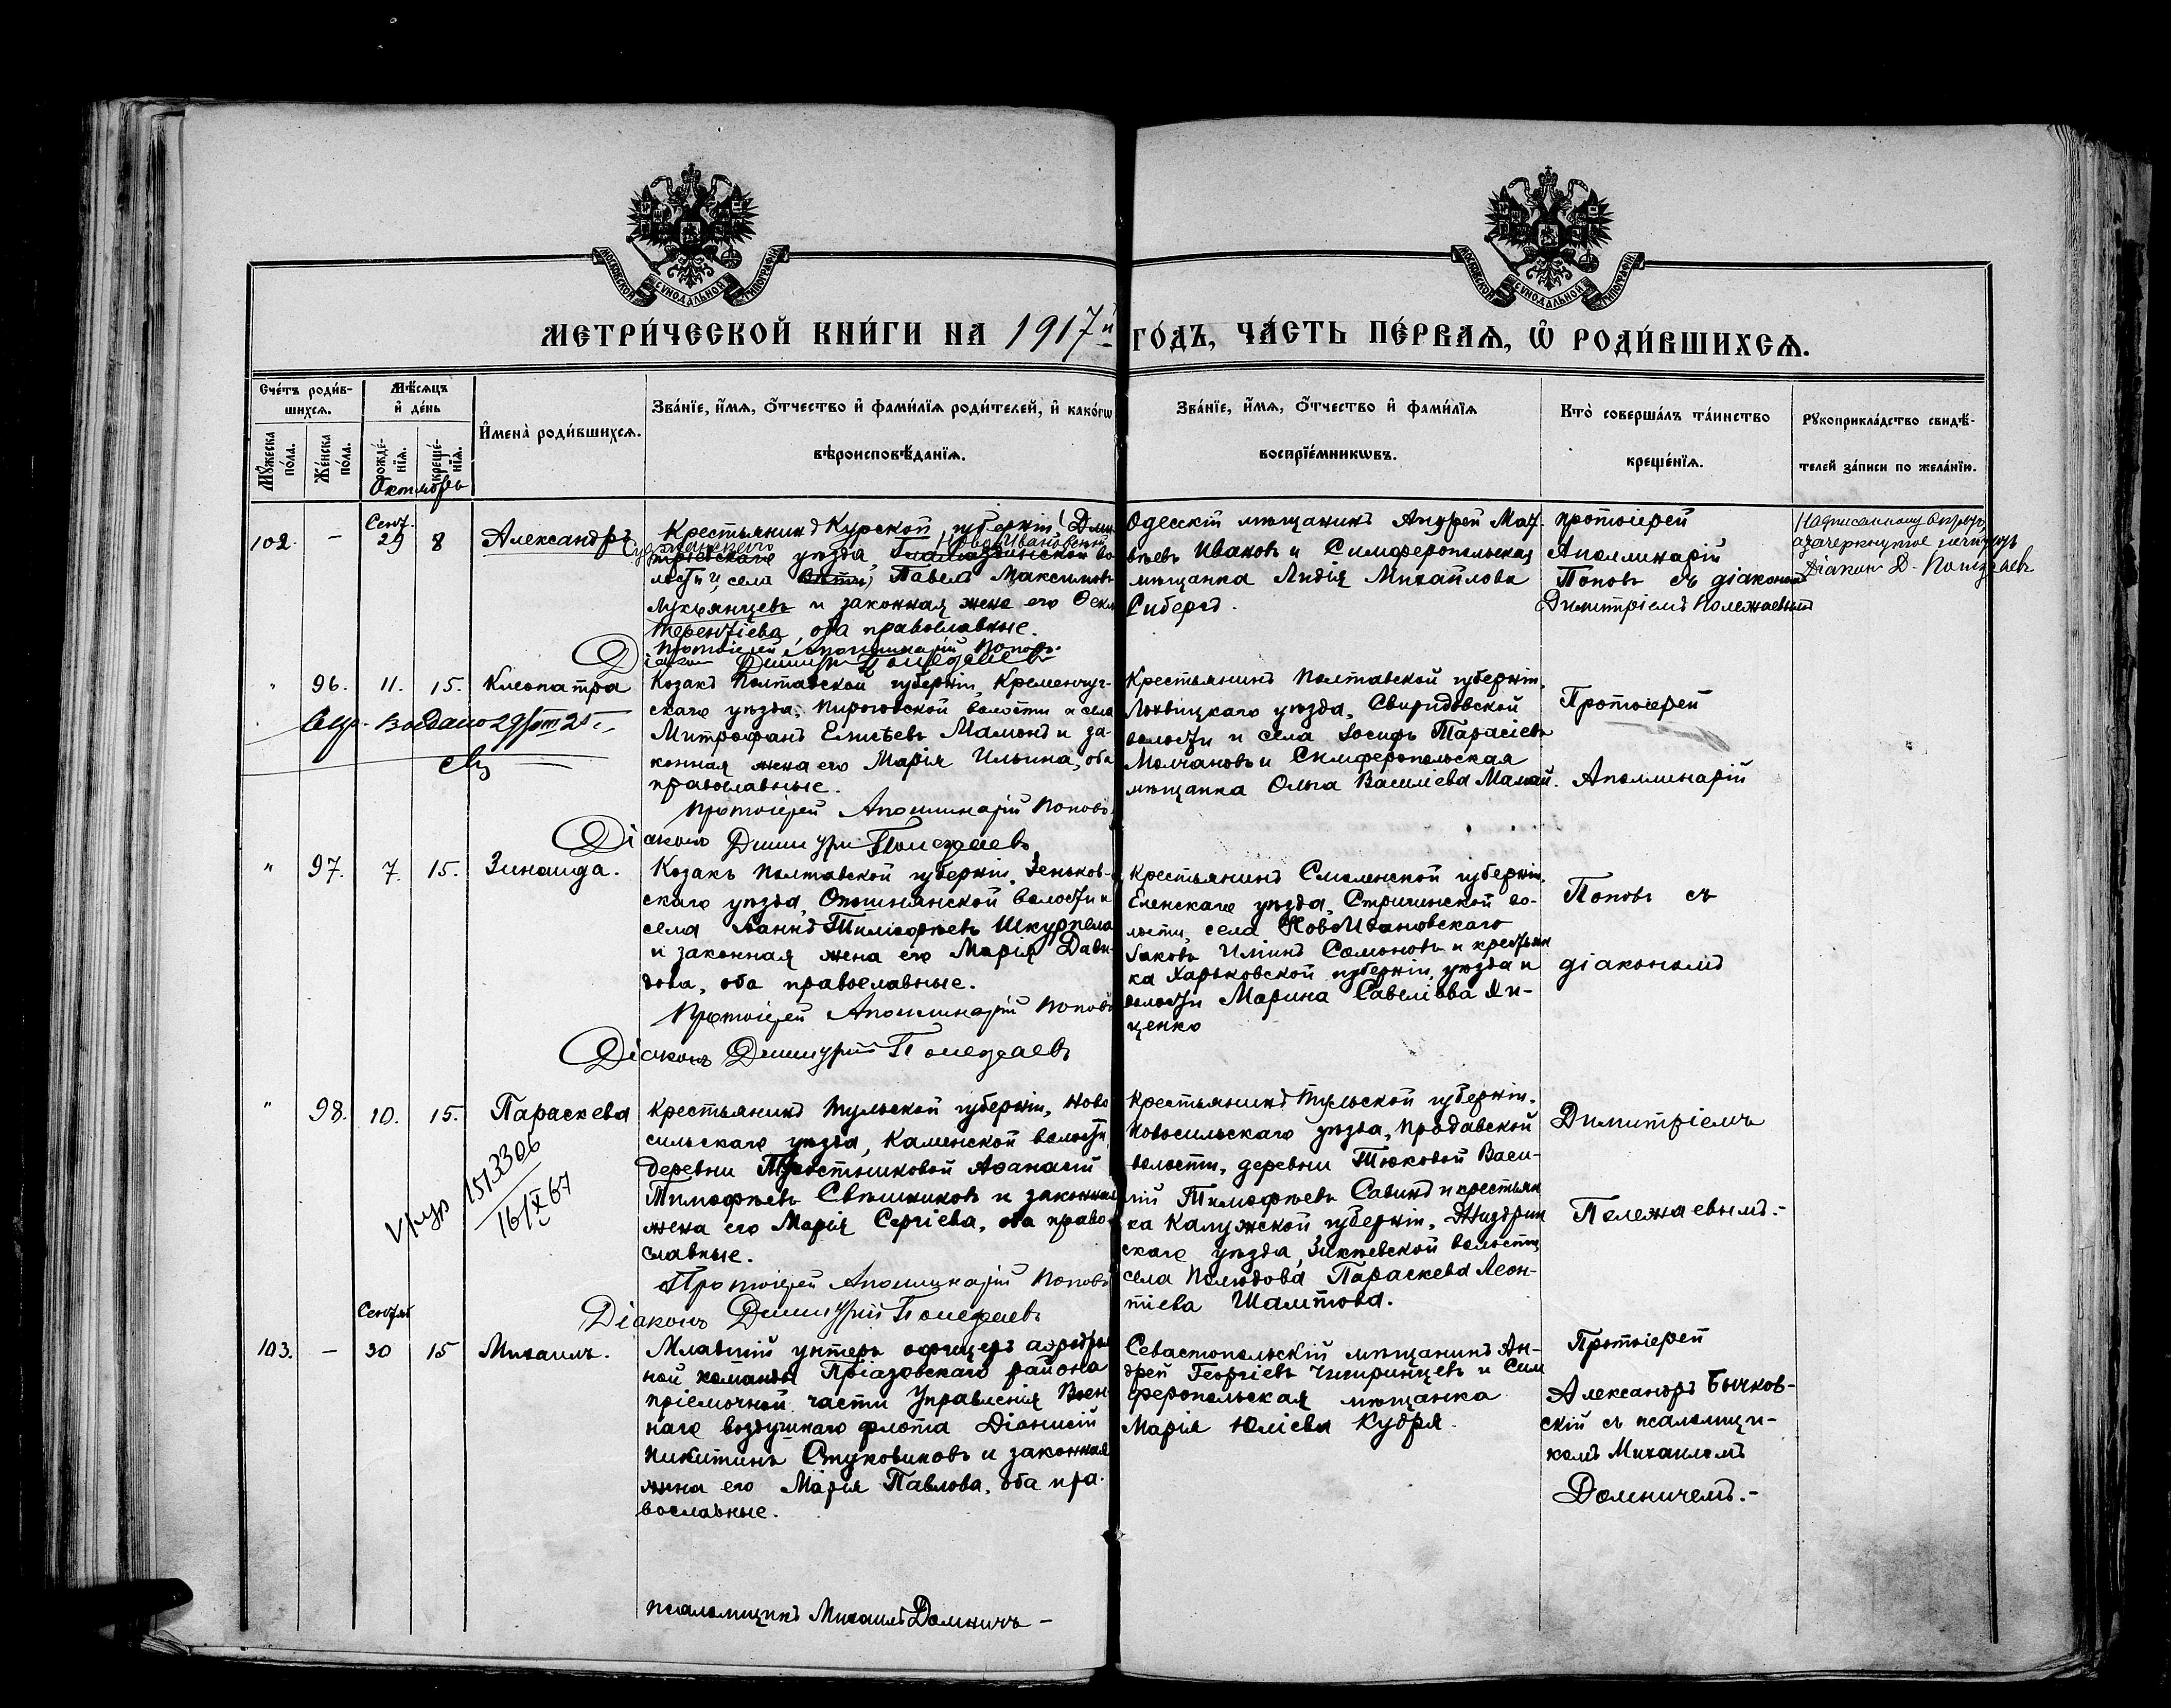 МОСКОВСКОЙ СѴНОДАЛЬНОЙ ТИПОГРАФІИ
МОСКОВСКОЙ СѴНОДАЛЬНОЙ ТИПОГРАФІИ
МЕТРИ́ЧЕСКОЙ КНИ́ГИ НА 1917й ГО́ДЪ, ЧА́СТЬ ПЕ́РВАѦ, Ѡ РОДИ́ВШИХСѦ.
Сче́тъ роди́в-
шихсѧ.
Мꙋ́жеска по́ла.
Же́нска по́ла.
Мѣ́сѧцъ
и҆ де́нь
рожде́-
нїѧ.
креще́-
нїѧ.
Октябрь
И҆мена̀ роди́вшихсѧ.
Зва́нїе, и҆́мѧ, ѻ҆́тчество и҆ фами́лїѧ роди́телей, и҆ како́гѡ
вѣроисповѣ́данїѧ.
Зва́нїе, и҆́мѧ, ѻ҆́тчество и҆ фами́лїѧ
воспрїе́мникѡвъ.
Кто̀ соверша́лъ та́инство
креще́нїѧ.
Рꙋкоприкла́дство свидѣ́-
телей за́писи по жела́нїю.
102. – Сент. 29 8 Александръ
Крестьянинъ Курской губерніи, Дми-
тріевскаго уѣзда,
Ново Ивановской во-
лости и села Павелъ Максимовъ
Лукьянцевъ и законная жена его Ѳекла
Терентіева, оба православные.
Протоіерей Аполлинарій Поповъ.
Діаконъ Димитрій Полежаевъ
Одесскій мѣщанинъ Андрей Мат-
вѣевъ Ивановъ и Симферопольская
мѣщанка Лидія Михайлова
Сиберсъ.
Протоіерей
Аполлинарій
Поповъ съ діакономъ
Димитріемъ Полежаевымъ
Надписанному
а зачеркнутое
Діаконъ Д. Полежаевъ
" 96. 11. 15. Клеопатра
Козакъ Полтавской губерніи, Кременчуг-
скаго уѣзда, Пироговской волости и села
Митрофанъ Елисѣевъ Мамонъ и за-
конная жена его Марія Ильина, оба
православные.
Протоіерей Аполлинарій Поповъ
Діаконъ Димитрій Полежаевъ
Крестьянинъ Полтавской губерніи,
Лохвицкаго уѣзда, Свиридовской
волости и села Іосифъ Тарасіевъ
Молчановъ и Симферопольская
мѣщанка Ольга Василіева Мамай.
Протоіерей
Аполлинарій
" 97. 7. 15. Зинаида.
Козакъ Полтавской губерніи, Зеньков-
скаго уѣзда, Опошнянской волости и
села Іоаннъ Тимофѣевъ Шкурпела
и законная жена его Марія Дави-
дова, оба православные.
Протоіерей Аполлинарій Поповъ
Діаконъ Димитрій Полежаевъ
Крестьянинъ Смоленской губерніи,
Еленскаго уѣзда, во-
лости, села НовоИвановскаго
Іаковъ Семеновъ и крестьян
ка Харьковской губерніи, уѣзда и
волости Марина Савеліева
щенко
Поповъ съ
діакономъ
" 98. 10. 15. Параскева
16/X 67
Крестьянинъ Тульской губерніи, Ново
сильскаго уѣзда, Каменской волости,
деревни Тростниковой Аѳанасій
Тимофѣевъ Свѣшниковъ и законная
жена его Марія Сергіева, оба право-
славные.
Протоіерей Аполлинарій Поповъ
Діаконъ Димитрій Полежаевъ
Крестьянинъ Тульской губерніи,
Новосильскаго уѣзда,
волости, деревни Тюковой Васи-
лій Тимофѣевъ Савинъ и крестьян
ка Калужской губерніи, Жиздрин
скаго уѣзда, Зикѣевской волости
села Полюдова Параскева Леон-
тіева Шамтова.
Димитріемъ
Полежаевымъ.-
Сентябр
103. – 30 15 Михаилъ.
Младшій унтеръ офицеръ аэродром
ной команды Пріазовскаго района
пріемочной части Управленія Воен-
наго воздушнаго флота Діонисій
Никитинъ Стуковиковъ и законная
жена его Марія Павлова, оба пра-
вославные.
псаломщикъ Михаилъ Домничъ –
Севастопольскій мѣщанинъ Ан-
дрей Георгіевъ Чигринцевъ и Сим
феропольская мѣщанка
Марія Юліева Кудря.
Протоіерей
Александръ Бычков-
скій съ псаломщи-
комъ Михаиломъ
Домничемъ.-